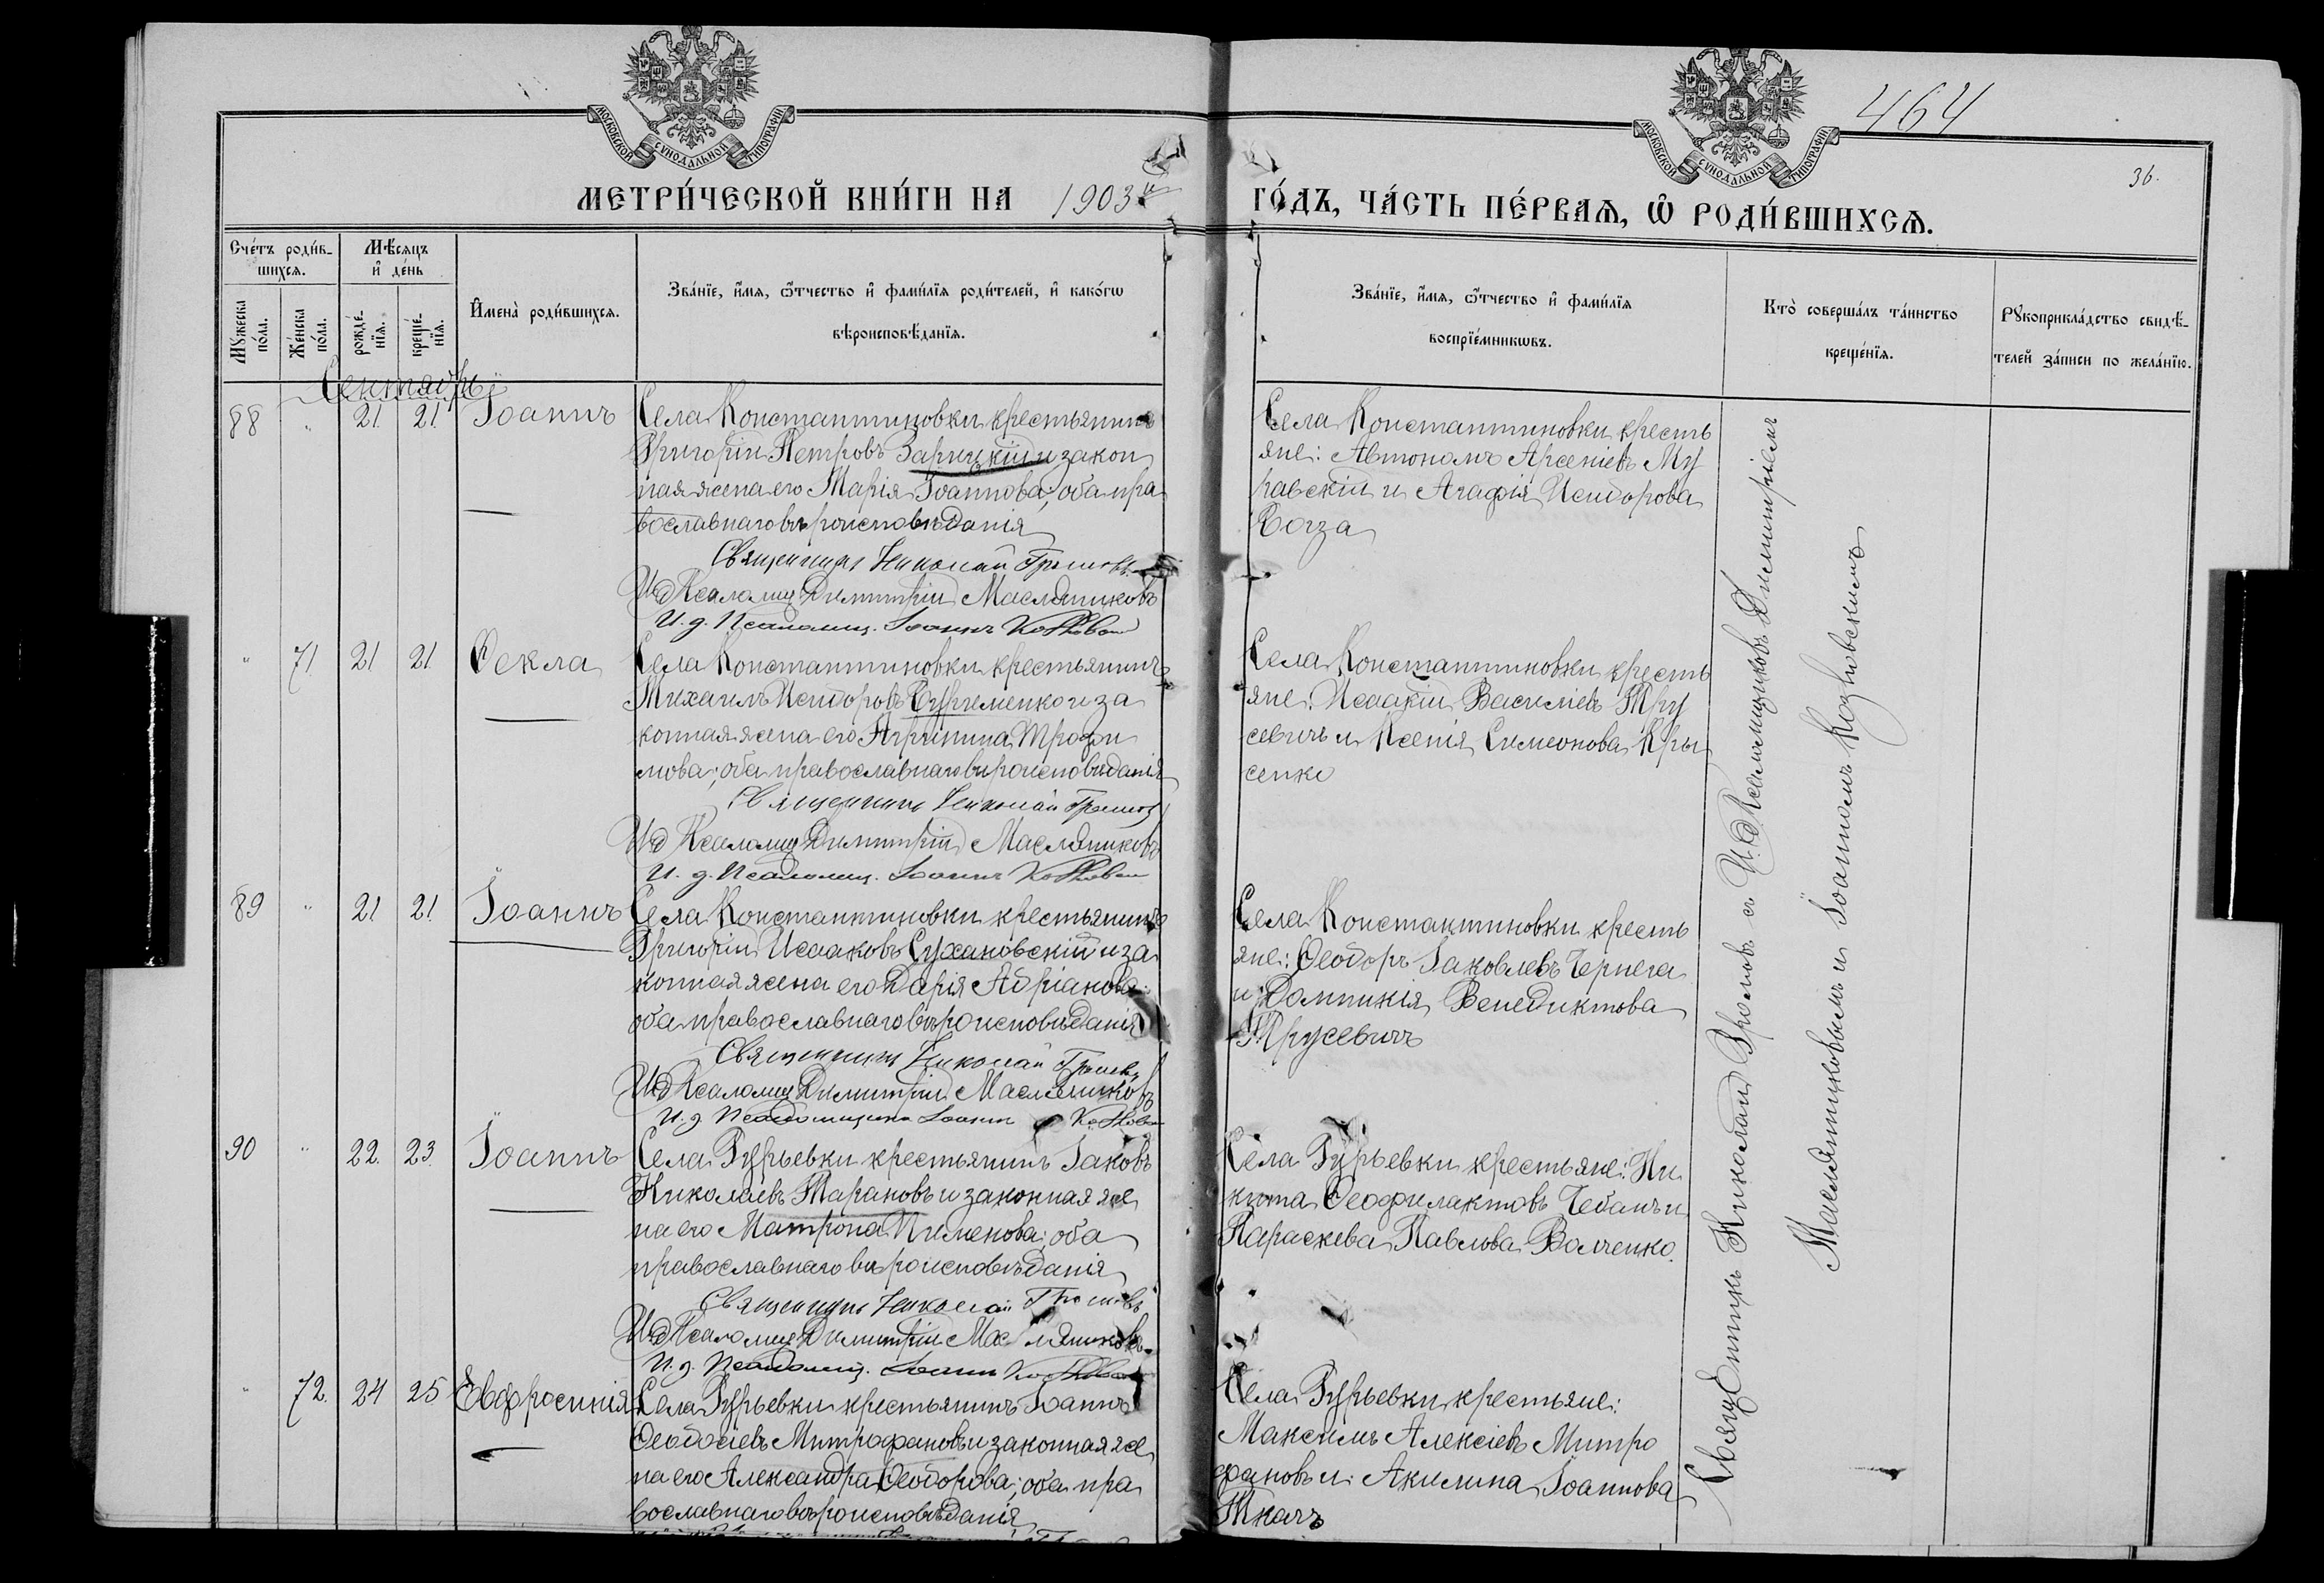 464
36.
МОСКОВСКОЙ СѴНОДАЛЬНОЙ ТИПОГРАФІИ
МОСКОВСКОЙ СѴНОДАЛЬНОЙ ТИПОГРАФІИ
МЕТРИ́ЧЕСКОЙ КНИ́ГИ НА 1903й
ГО́ДЪ, ЧА́СТЬ ПЕ́РВАѦ, Ѡ РОДИ́ВШИХСѦ.
Сче́тъ роди́в-
шихсѧ.
Мѣ́сяцъ
и҆ де́нь
И҆мена̀ роди́вшихсѧ.
Зва́нїе, и҆́мѧ, ѻ҆́тчество и҆ фами́лїѧ роди́телей, и҆ како́гѡ
вѣроисповѣ́данїѧ.
Мꙋ́жеска
по́ла.
Же́нска
по́ла.
рожде́-
нїѧ.
креще́-
нїѧ.
Зва́нїе, и҆́мѧ, ѻ҆́тчество и҆ фами́лїѧ
воспрїе́мникѡвъ.
Кто̀ соверша́лъ та́инство
креще́нїѧ.
Рꙋкоприкла́дство свидѣ́-
телей за́писи по жела́нїю.
Сентябрь
88 " 21 21. Іоаннъ
Села Константиновки крестьянинъ
Григорій Петровъ Зарицкій и закон
ная жена его Марія Іоаннова; оба пра
вославнаго вѣроисповѣданія
Священникъ Николай
И д Псаломщ Димитрій Масляниковъ
И. д. Псаломщ. Іоаннъ
Села Константиновки кресть
яне: Автономъ Арсеніевъ Му
равскій и Агафія Исидорова
Когза
" 71. 21 21. Ѳекла
Села Константиновки крестьянинъ
Михаилъ Исидоровъ и за
конная жена его Агрипина Трофи
мова; оба православнаго вѣроисповѣданія
Священникъ Николай
И д Псаломщ Димитрій Масляниковъ
И. д. Псаломщ. Іоаннъ
Села Константиновки кресть
яне: Исаакій Василіевъ Тру
севичъ и Ксенія Симеонова Кры
сенко
89 " 21 21. Іоаннъ
Села Константиновки крестьянинъ
Григорій Исааковъ Сухановскій и за
конная жена его Дарія Адріанова;
оба православнаго вѣроисповѣданія
Священникъ Николай
И д Псаломщ Димитрій Масляниковъ
И. д. Псаломщика Іоаннъ
Села Константиновки кресть
яне: Ѳеодоръ Іаковлевъ Чернега
и Домникія Венедиктова
Трусевичъ
90 " 22. 23. Іоаннъ
Села Гурьевки крестьянинъ Іаковъ
Николаевъ Тарановъ и законная же
на его Матрона Пименова; оба
православнаго вѣроисповѣданія
Священникъ Николай
И д Псаломщ Димитрій Масляниковъ
И. д. Псаломщ. Іоаннъ
Села Гурьевки крестьяне: Ни
кита Ѳеофилактовъ Чебанъ и
Параскева Павлова Волченко.
" 72. 24 25 Евфросинія
Села Гурьевки крестьянинъ Іоаннъ
Ѳеодосіевъ Митрофановъ и законная же
на его Александра Ѳеодорова; оба пра
вославнаго вѣроисповѣданія
Села Гурьевки крестьяне:
Максимъ Алексіевъ Митро
фановъ и Акилина Іоаннова
Ткачъ
Священникъ Николай съ И. д. Псаломщиковъ Димитріемъ
Масляниковымъ и Іоанномъ